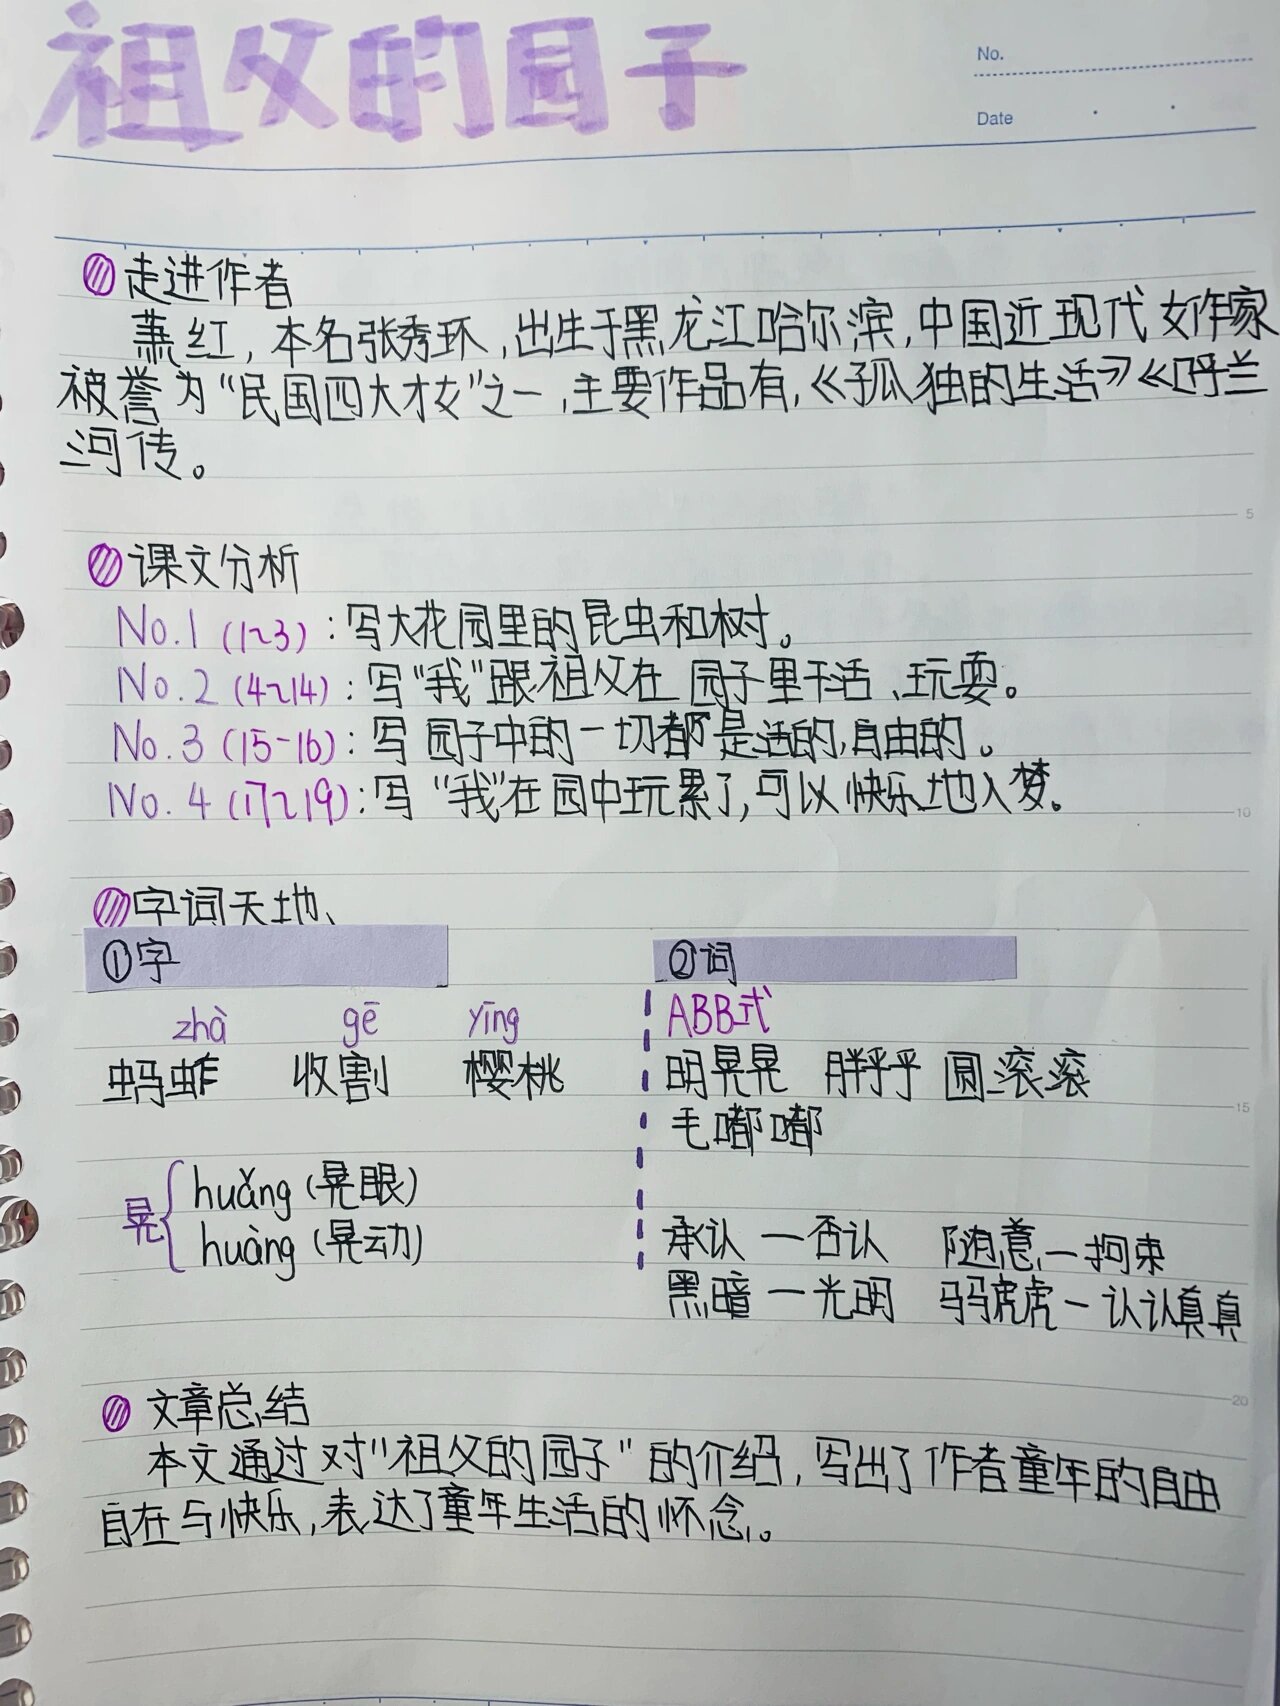 祖父的园子
No.
Date
走进作者
萧红，本名张秀环，出生于黑龙江哈尔滨，中国近现代女作家
被誉为“民国四大才女”之一，主要作品有，《孤独的生活》《呼兰
河传。
5
课文分析
No.1 (1~3)：写大花园里的昆虫和树。
No.2 (4~14)：写“我”跟祖父在园子里干活、玩耍。
No.3 (15-16)：写园子中的一切都是活的，自由的。
No.4 (17~19)：写“我”在园中玩累了，可以快乐地入梦。
10
字词天地、
①字
②词
zhà gē yīng
蚂蚱 收割 樱桃
晃 huǎng (晃眼)
huàng (晃动)
ABB式
明晃晃 胖乎乎 圆滚滚
15
毛嘟嘟
承认—否认 随意—拘束
黑暗—光明 马马虎虎—认认真真
20
文章总结
本文通过对“祖父的园子”的介绍，写出了作者童年的自由
自在与快乐，表达了童年生活的怀念。